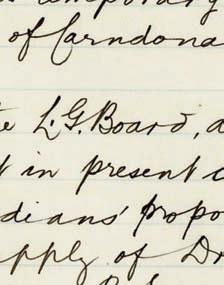 temporary
of Carndona
L.G. Board, a
t in present c
dians' propo
pply of Dr